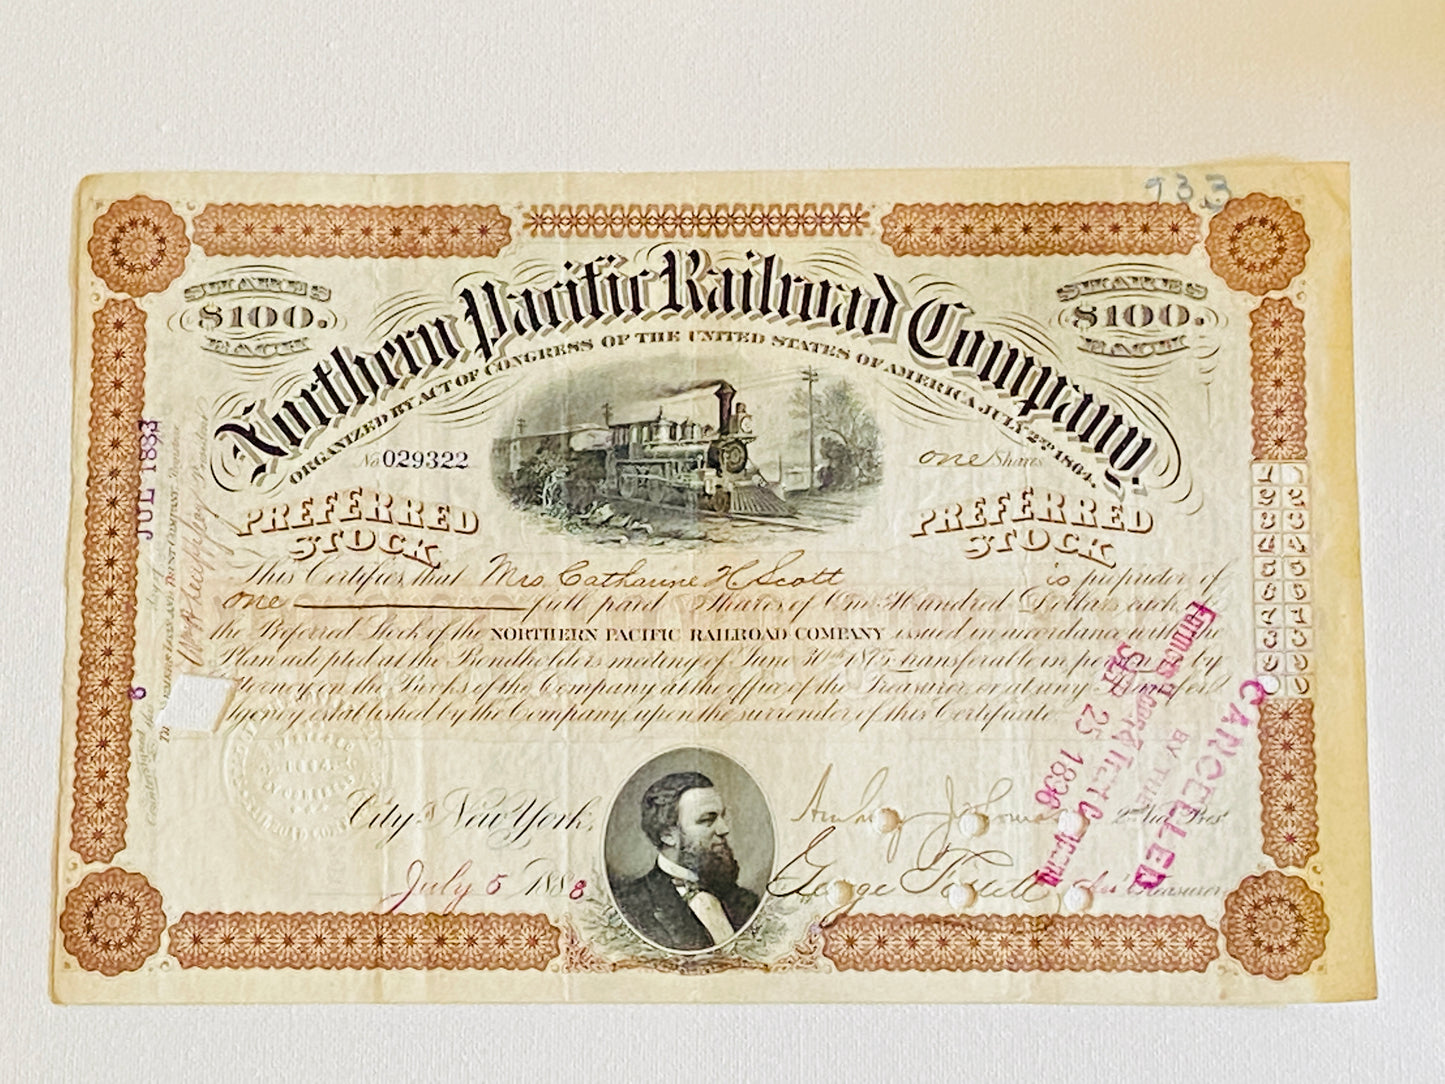 933
SHARES
$100.
EACH
SHARES
$100.
EACH
Northern Pacific Railroad Company.
ORGANIZED BY ACT OF CONGRESS OF THE UNITED STATES OF AMERICA JULY 2ND 1864.
No. 029322
one Shares
PREFERRED STOCK
PREFERRED STOCK
This Certifies that Mrs Catharine H Scott is proprietor of
one full paid Shares of One Hundred Dollars each of
the Preferred Stock of the NORTHERN PACIFIC RAILROAD COMPANY issued in accordance with the
Plan adopted at the Bondholders meeting of June 30th 1875 transferable in person or by
Attorney on the Books of the Company at the office of the Treasurer, or at any Transfer
Agency established by the Company, upon the surrender of this Certificate.
City of New York,
July 5 1888
2nd Vice Pres't
George
Ass't Treasurer
Countersigned
LOAN AND TRUST COMPANY,
JUL
6
1
2
3
4
5
6
7
8
9
0
1
2
3
4
5
6
7
8
9
0
SEP 25 1896
CANCELLED
BY THE
Farmers Loan & Trust Company